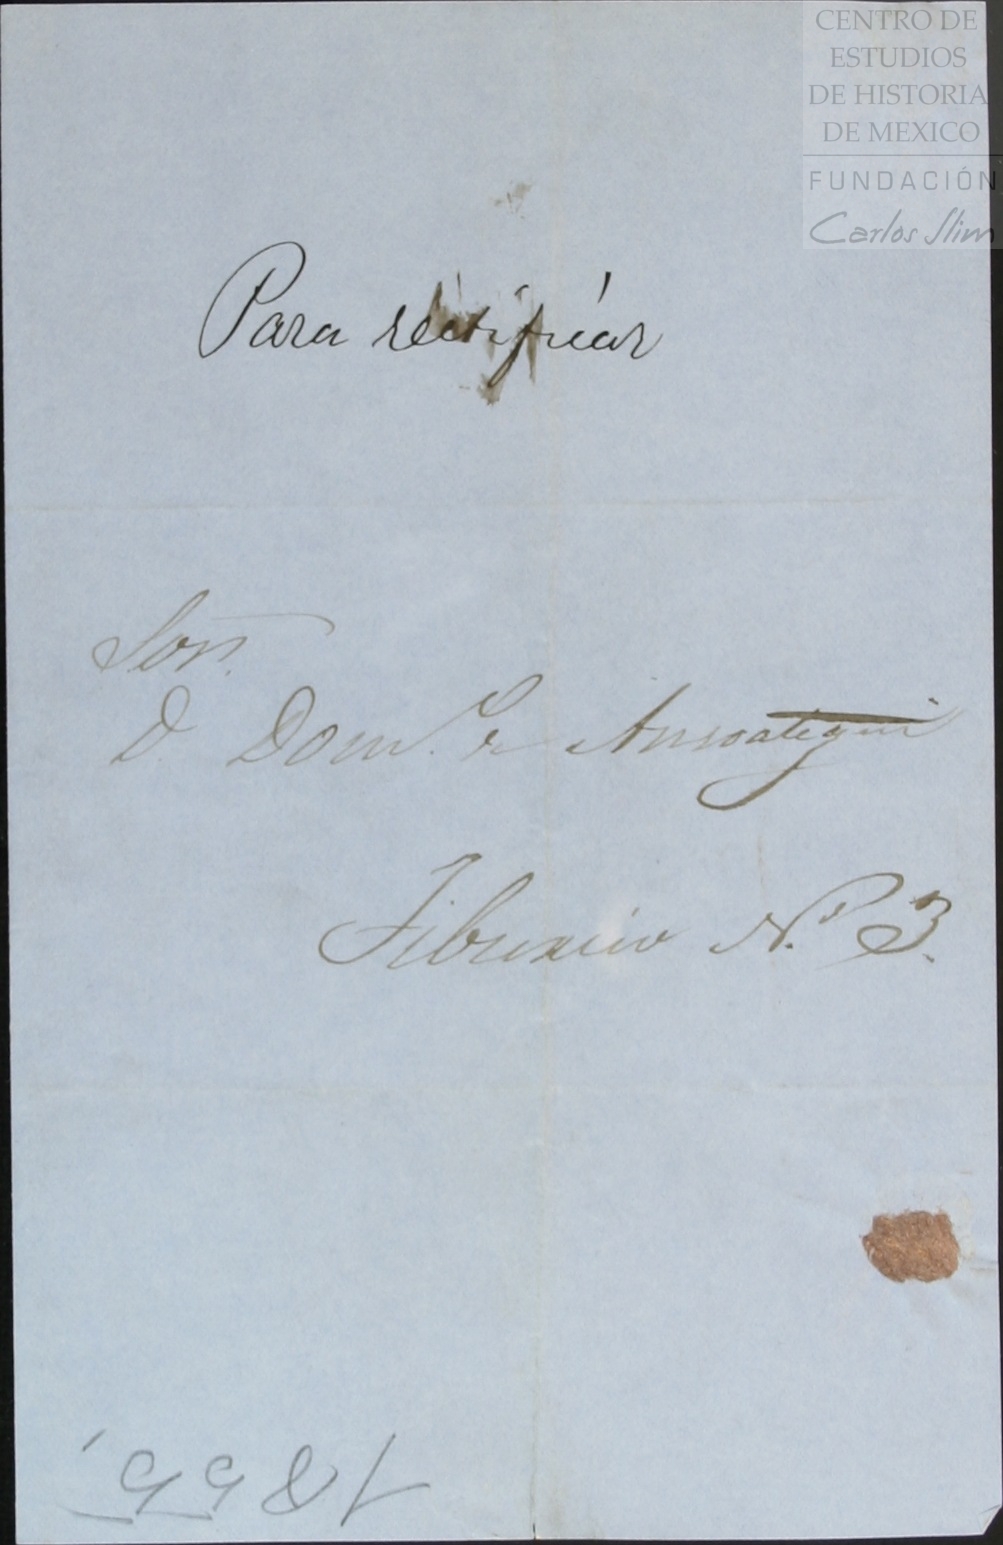 CENTRO DE
ESTUDIOS
DE HISTORIA
DE MEXICO
FUNDACIÓN
Carlos Slim
Para rectificar
Sor.
D. Dom.º de Ansoategui
Tiburcio N.º 3.
1855